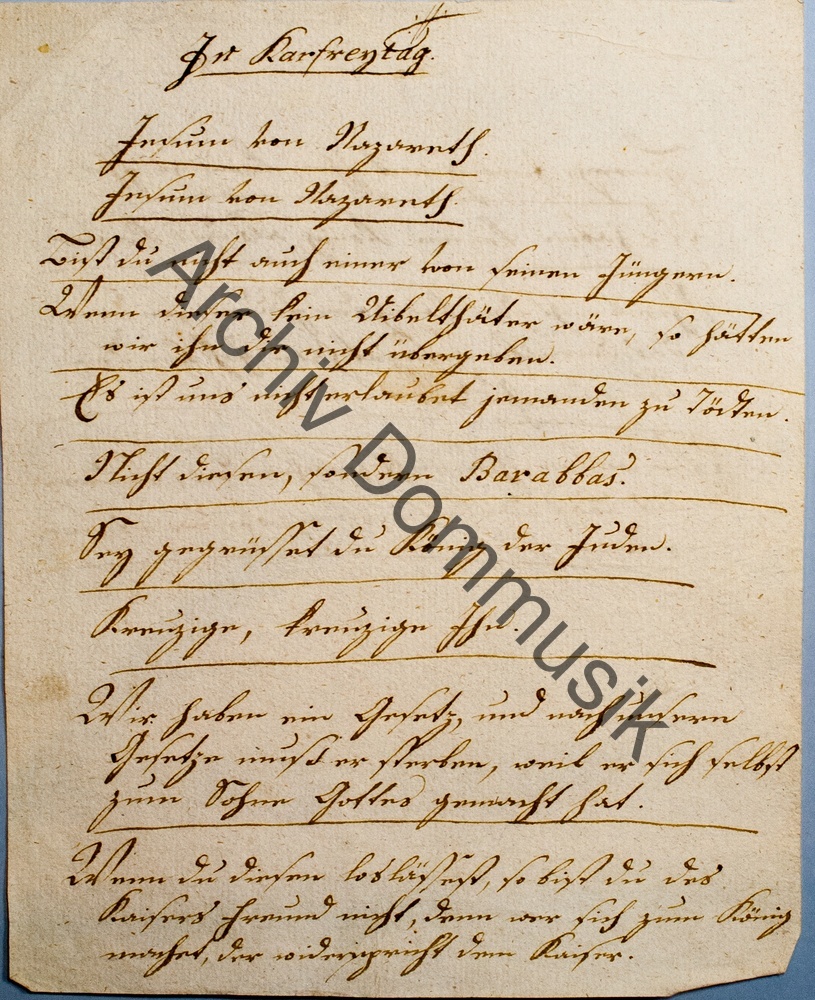 Karfreytag.
Jesum von Nazareth.
Jesum von Nazareth.
Bist du nicht auch einer von seinen Jüngern.
Wenn dieser kein Uibelthäter wäre, so hätten
wir ihn dir nicht übergeben.
Es ist uns nicht erlaubet jemanden zu tödten.
Nicht diesen, sondern Barabbas.
Sey gegrüsset du König der Juden.
Kreuzige, kreuzige Ihn.
Wir haben ein Gesetz, und nach unserm
Gesetze muß er sterben, weil er sich selbst
zum Sohne Gottes gemacht hat.
Wenn du diesen loslässest, so bist du des
Kaisers Freund nicht, denn wer sich zum König
machet, der widerspricht dem Kaiser.
Archiv Dommusik